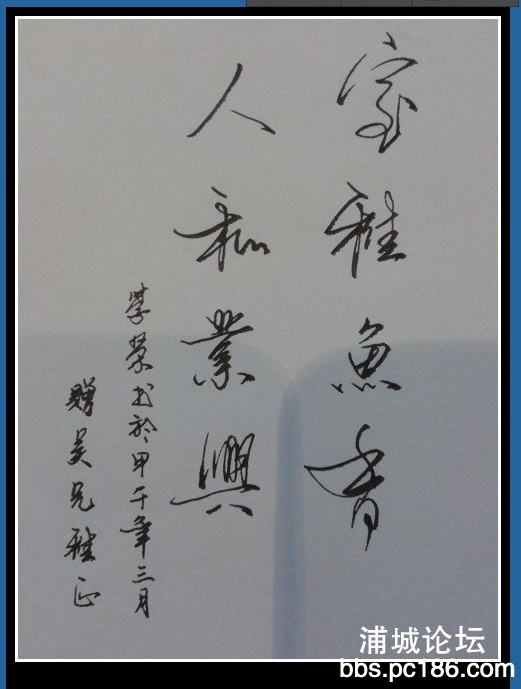 室雅魚香
人和業興
學榮书於甲午年三月
赠吴兄雅正
浦城论坛
bbs.pc186.com